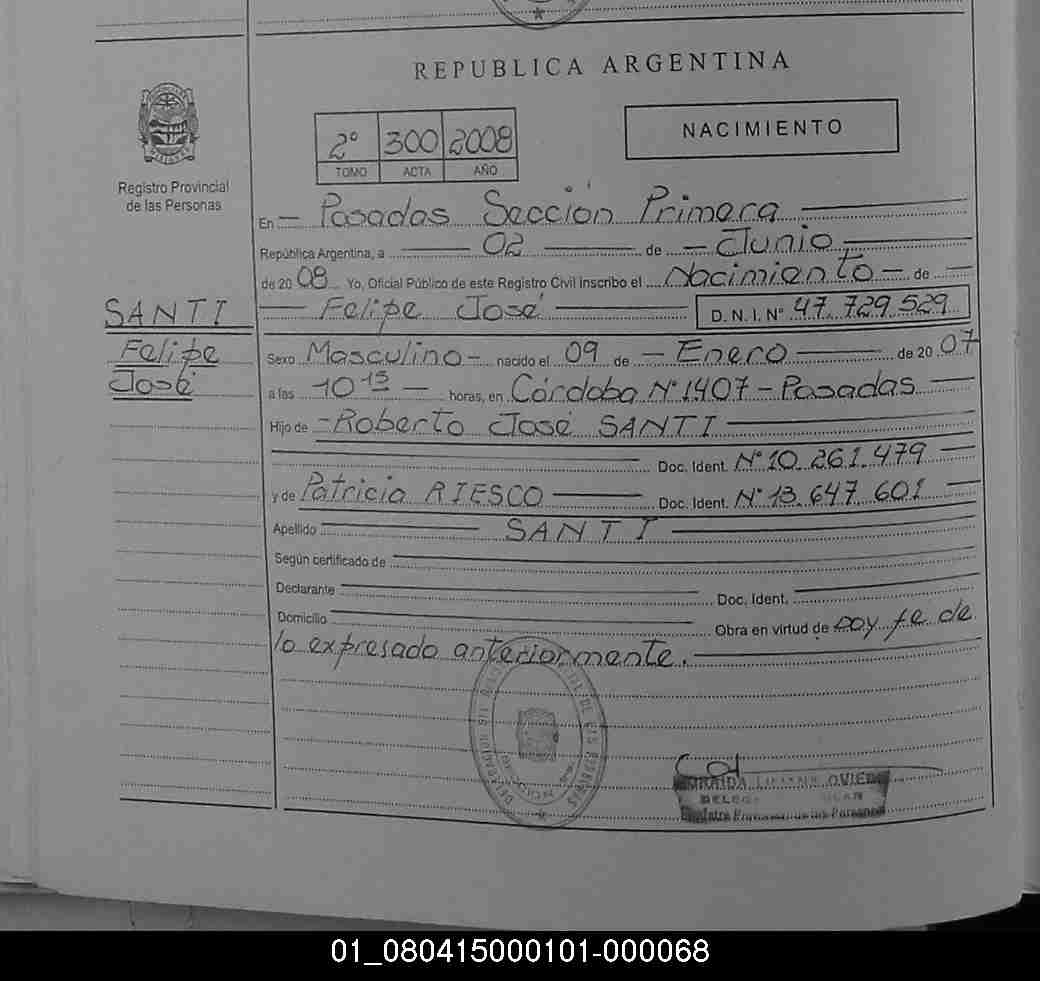 REPUBLICA ARGENTINA
NACIMIENTO
2° 300 2008
TOMO ACTA AÑO
Registro Provincial
de las Personas
En Posadas Sección Primera
República Argentina, a 02 de Junio
de 2008 Yo, Oficial Público de este Registro Civil Inscribo el Nacimiento de
Felipe José D. N. I. N° 47.729.529
SANTI
Felipe
José
Sexo Masculino nacido el 09 de Enero de 2007
a las 10 15 horas, en Córdoba N° 1407 - Posadas
Hijo de Roberto José SANTI
Doc. Ident. N° 10.261.479
y de Patricia RIESCO Doc. Ident. N° 13.647.601
Apellido SANTI
Según certificado de
Declarante Doc. Ident.
Domicilio Obra en virtud de doy fe de
lo expresado anteriormente.
OVIEDO
01_080415000101-000068